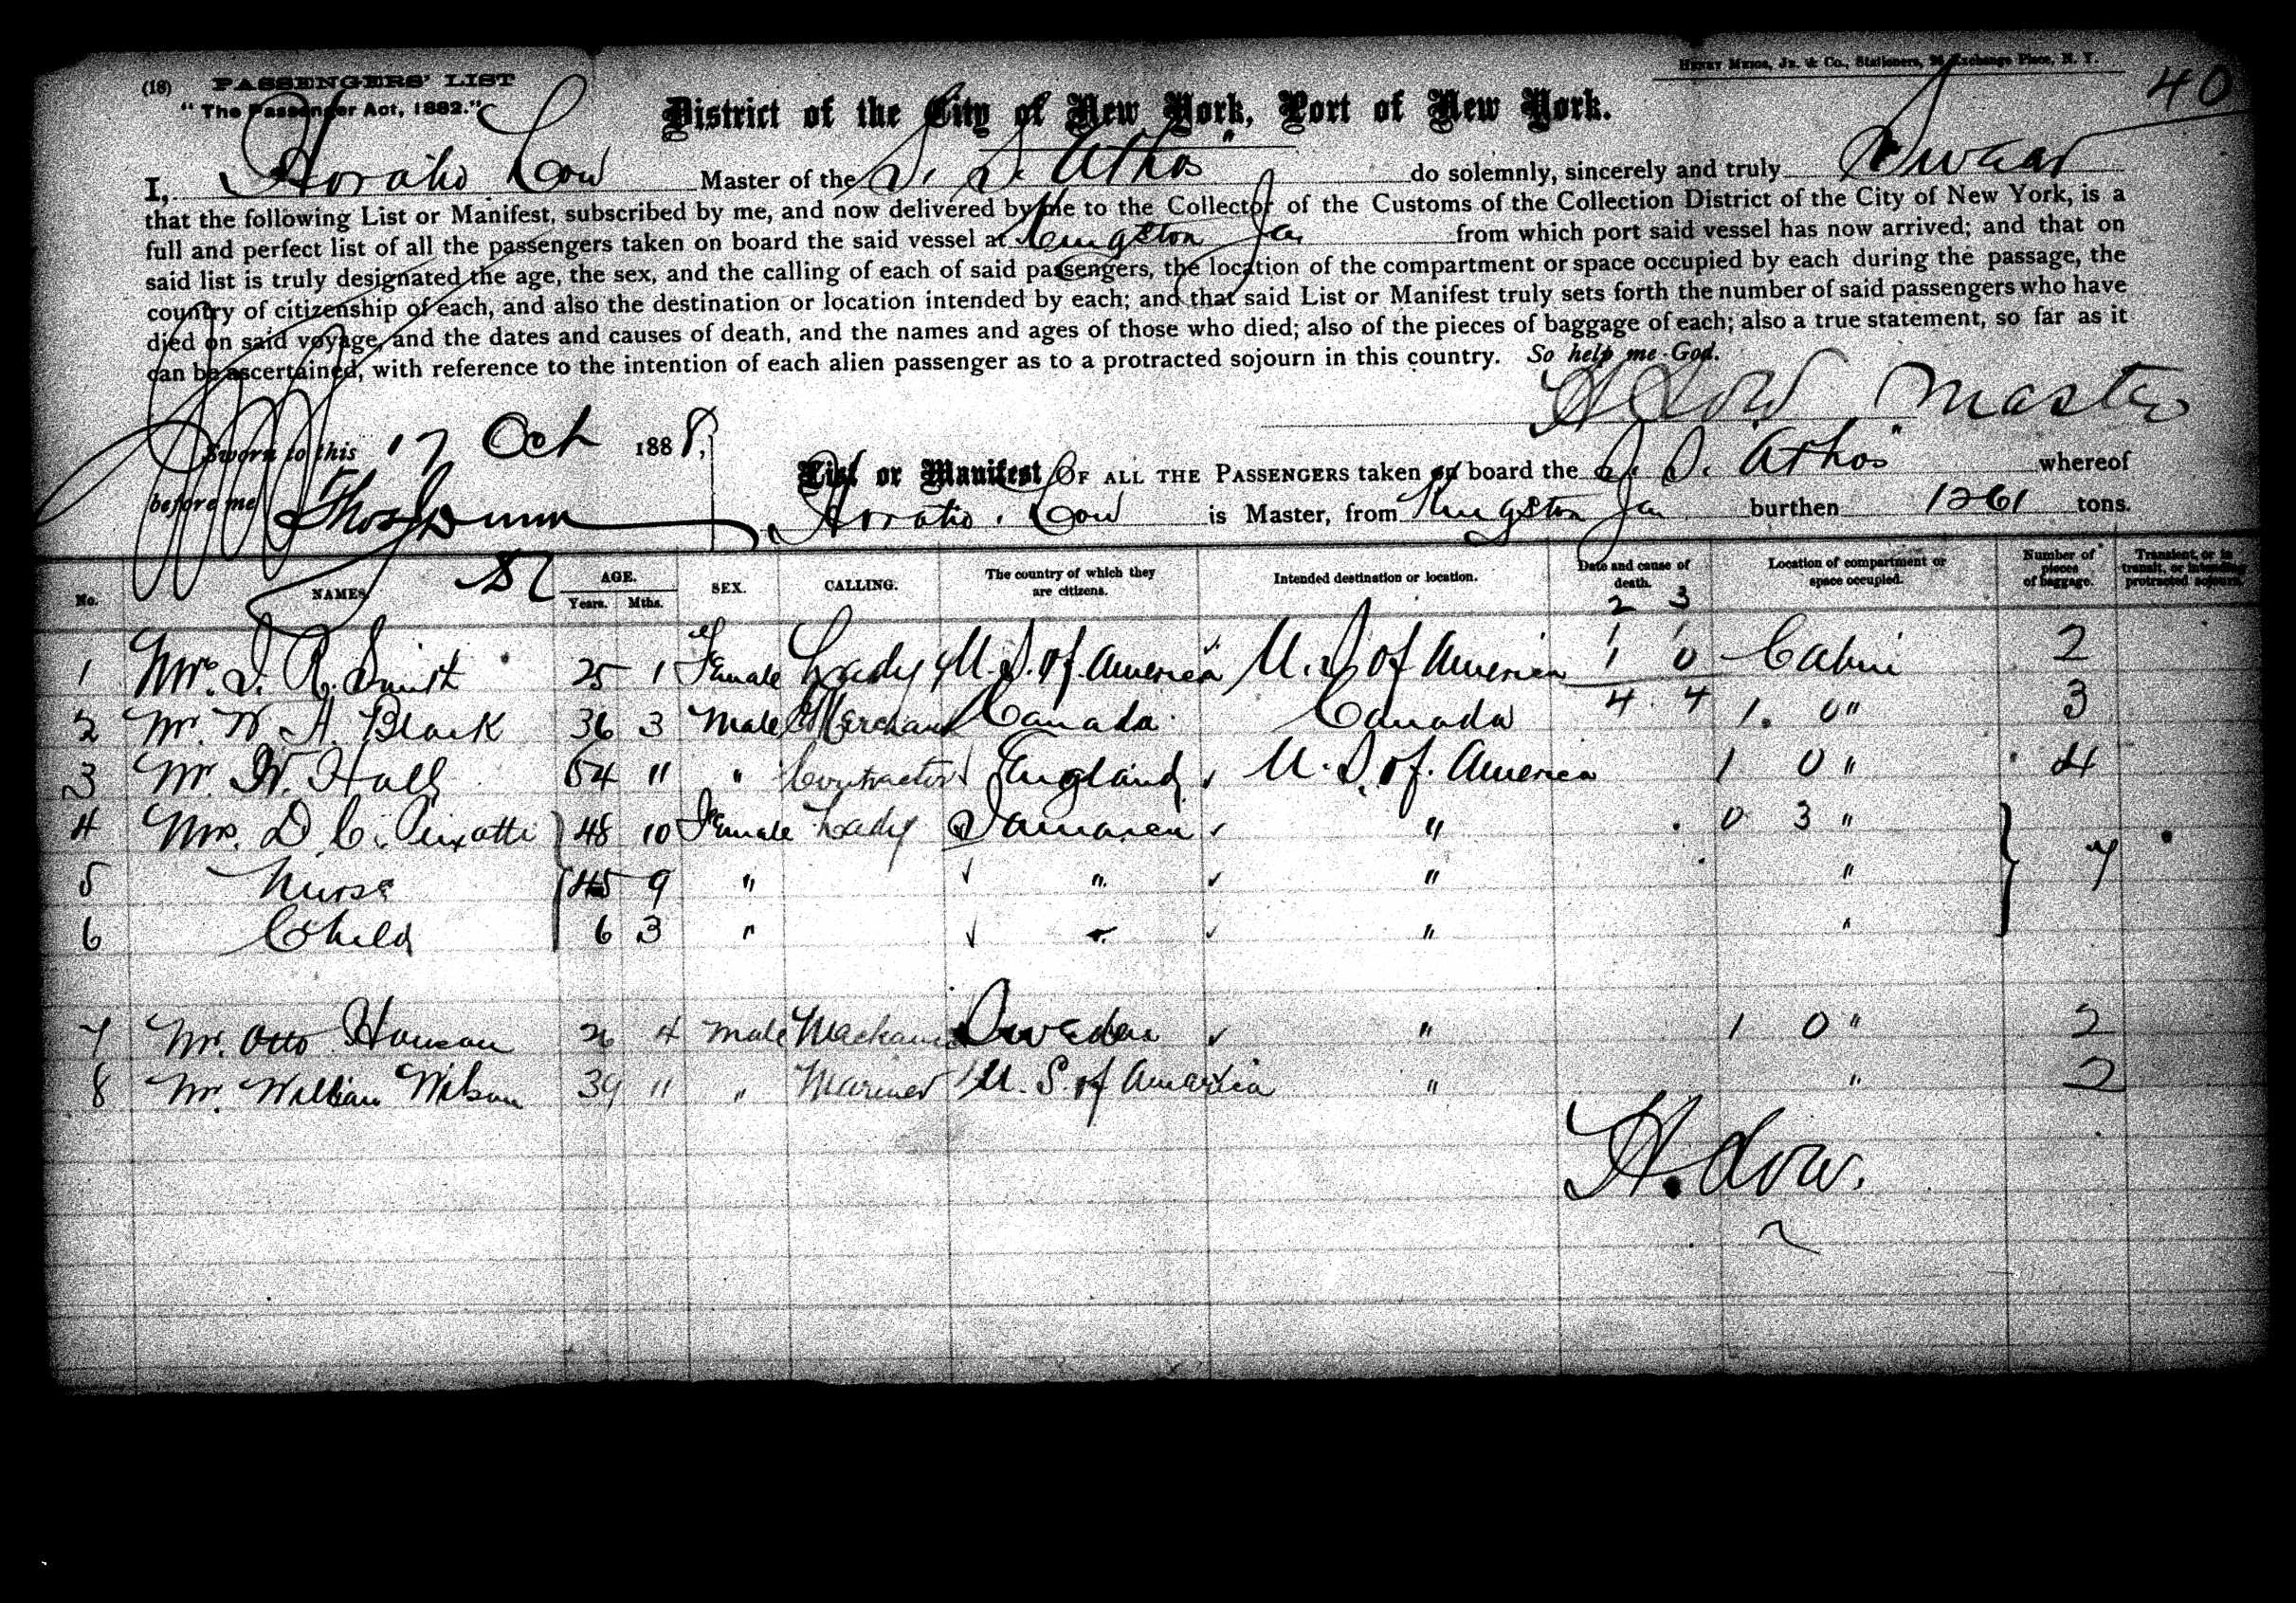 (18) PASSENGERS' LIST
HENRY MEIGS, JR. & CO., Stationers, Exchange Place, N. Y.
"The Passenger Act, 1882."
40
District of the City of New York, Port of New York.
I, Horatio Low Master of the S. S. "Athos" do solemnly, sincerely and truly Swear
that the following List or Manifest, subscribed by me, and now delivered by me to the Collector of the Customs of the Collection District of the City of New York, is a
full and perfect list of all the passengers taken on board the said vessel at Kingston Ja from which port said vessel has now arrived; and that on
said list is truly designated the age, the sex, and the calling of each of said passengers, the location of the compartment or space occupied by each during the passage, the
country of citizenship of each, and also the destination or location intended by each; and that said List or Manifest truly sets forth the number of said passengers who have
died on said voyage, and the dates and causes of death, and the names and ages of those who died; also of the pieces of baggage of each; also a true statement, so far as it
can be ascertained, with reference to the intention of each alien passenger as to a protracted sojourn in this country. So help me God.
H Low Master
Sworn to this 17 Oct 1888,
before me Thos Dunn
List or Manifest OF ALL THE PASSENGERS taken on board the S. S. "Athos" whereof
Horatio Low is Master, from Kingston Ja burthen 1261 tons.
No. NAMES. AGE. Years. Mths. SEX. CALLING. The country of which they are citizens. Intended destination or location. Date and cause of death. Location of compartment or space occupied. Number of pieces of baggage. Transient, or in transit, or intending protracted sojourn.
2 3
1 1
1 Mrs. S. R. Smith 25 1 Female Lady U. S. of America U. S. of America 1 0 Cabin 2
2 Mr. W. A. Black 36 3 Male Merchant Canada Canada 4 4 1 0 " 3
3 Mr. W. Hall 54 11 " Contractor England U. S. of America 1 0 " 4
4 Mrs. D. C. 48 10 Female Lady Jamaica " 0 3 "
5 Nurse 45 9 " " " " 7
6 Child 6 3 " " " "
7 Mr. Otto Hanson 26 4 Male Mechanic Sweden " 1 0 " 2
8 Mr. William Wilson 39 11 " Mariner U. S. of America " " 2
H. Low.